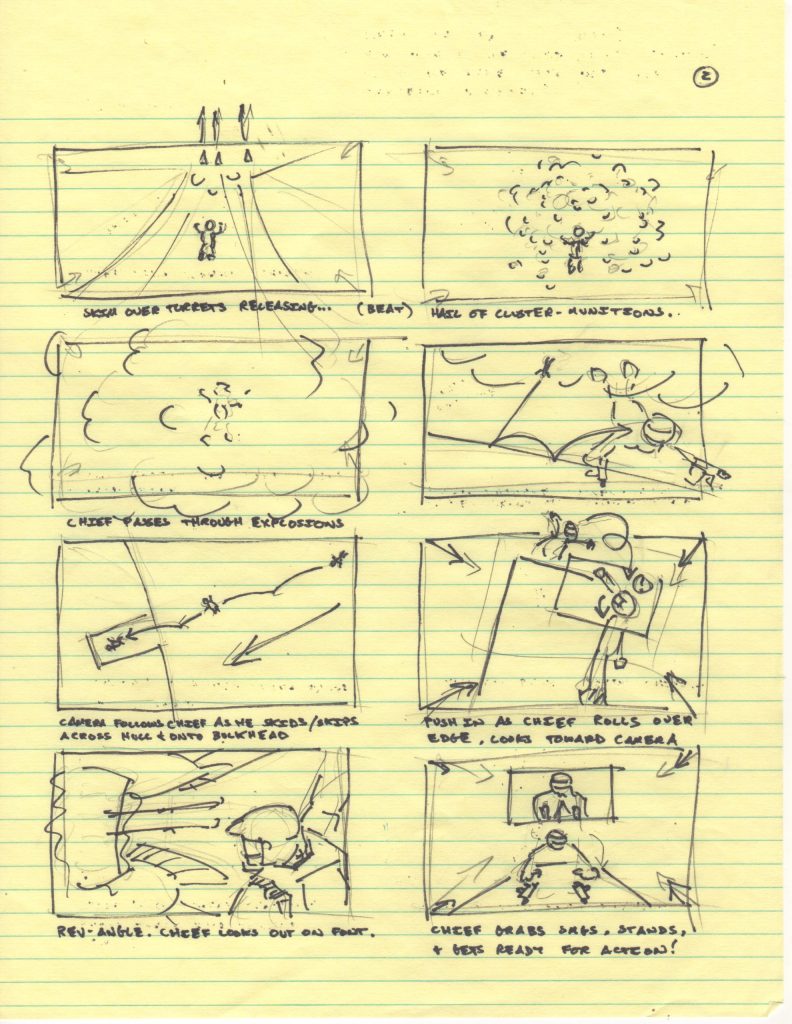 2
SKIM OVER TURRETS RELEASING...
(BEAT)
HAIL OF CLUSTER-MUNITIONS..
CHIEF PASSES THROUGH EXPLOSIONS
CAMERA FOLLOWS CHIEF AS HE SKIDS/SKIPS
ACROSS HULL & ONTO BULKHEAD
PUSH IN AS CHIEF ROLLS OVER
EDGE, LOOKS TOWARD CAMERA
REV-ANGLE. CHIEF LOOKS OUT ON FONT.
CHIEF GRABS SMGS, STANDS,
+ GETS READY FOR ACTION!